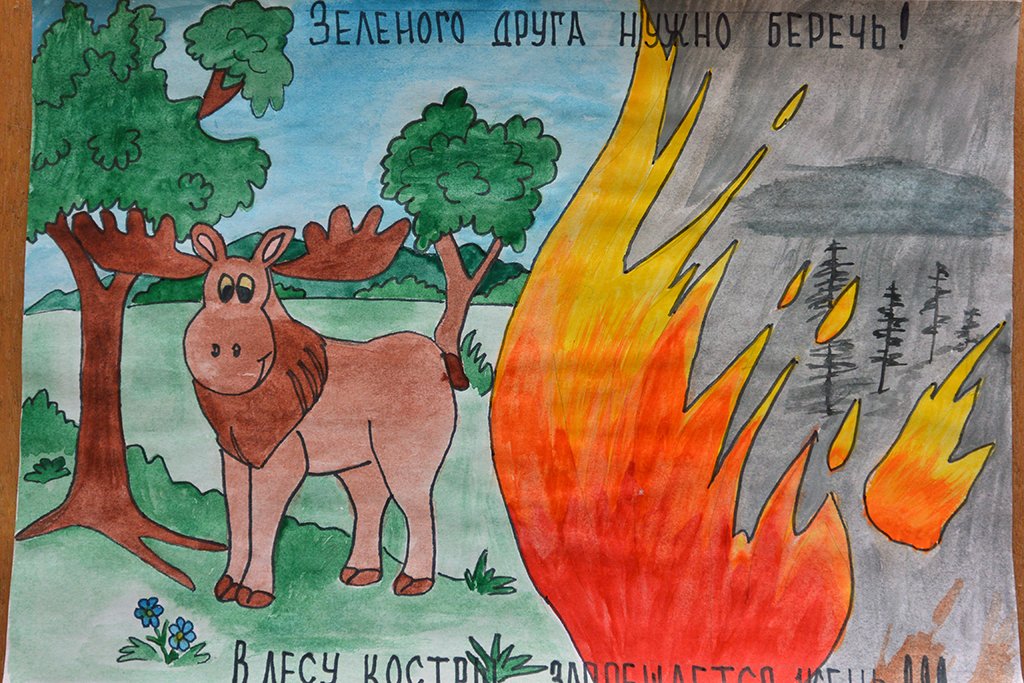 ЗЕЛЕНОГО ДРУГА НУЖНО БЕРЕЧЬ!
В ЛЕСУ КОСТРЫ ЗАПРЕЩАЕТСЯ ЖЕЧЬ!!!